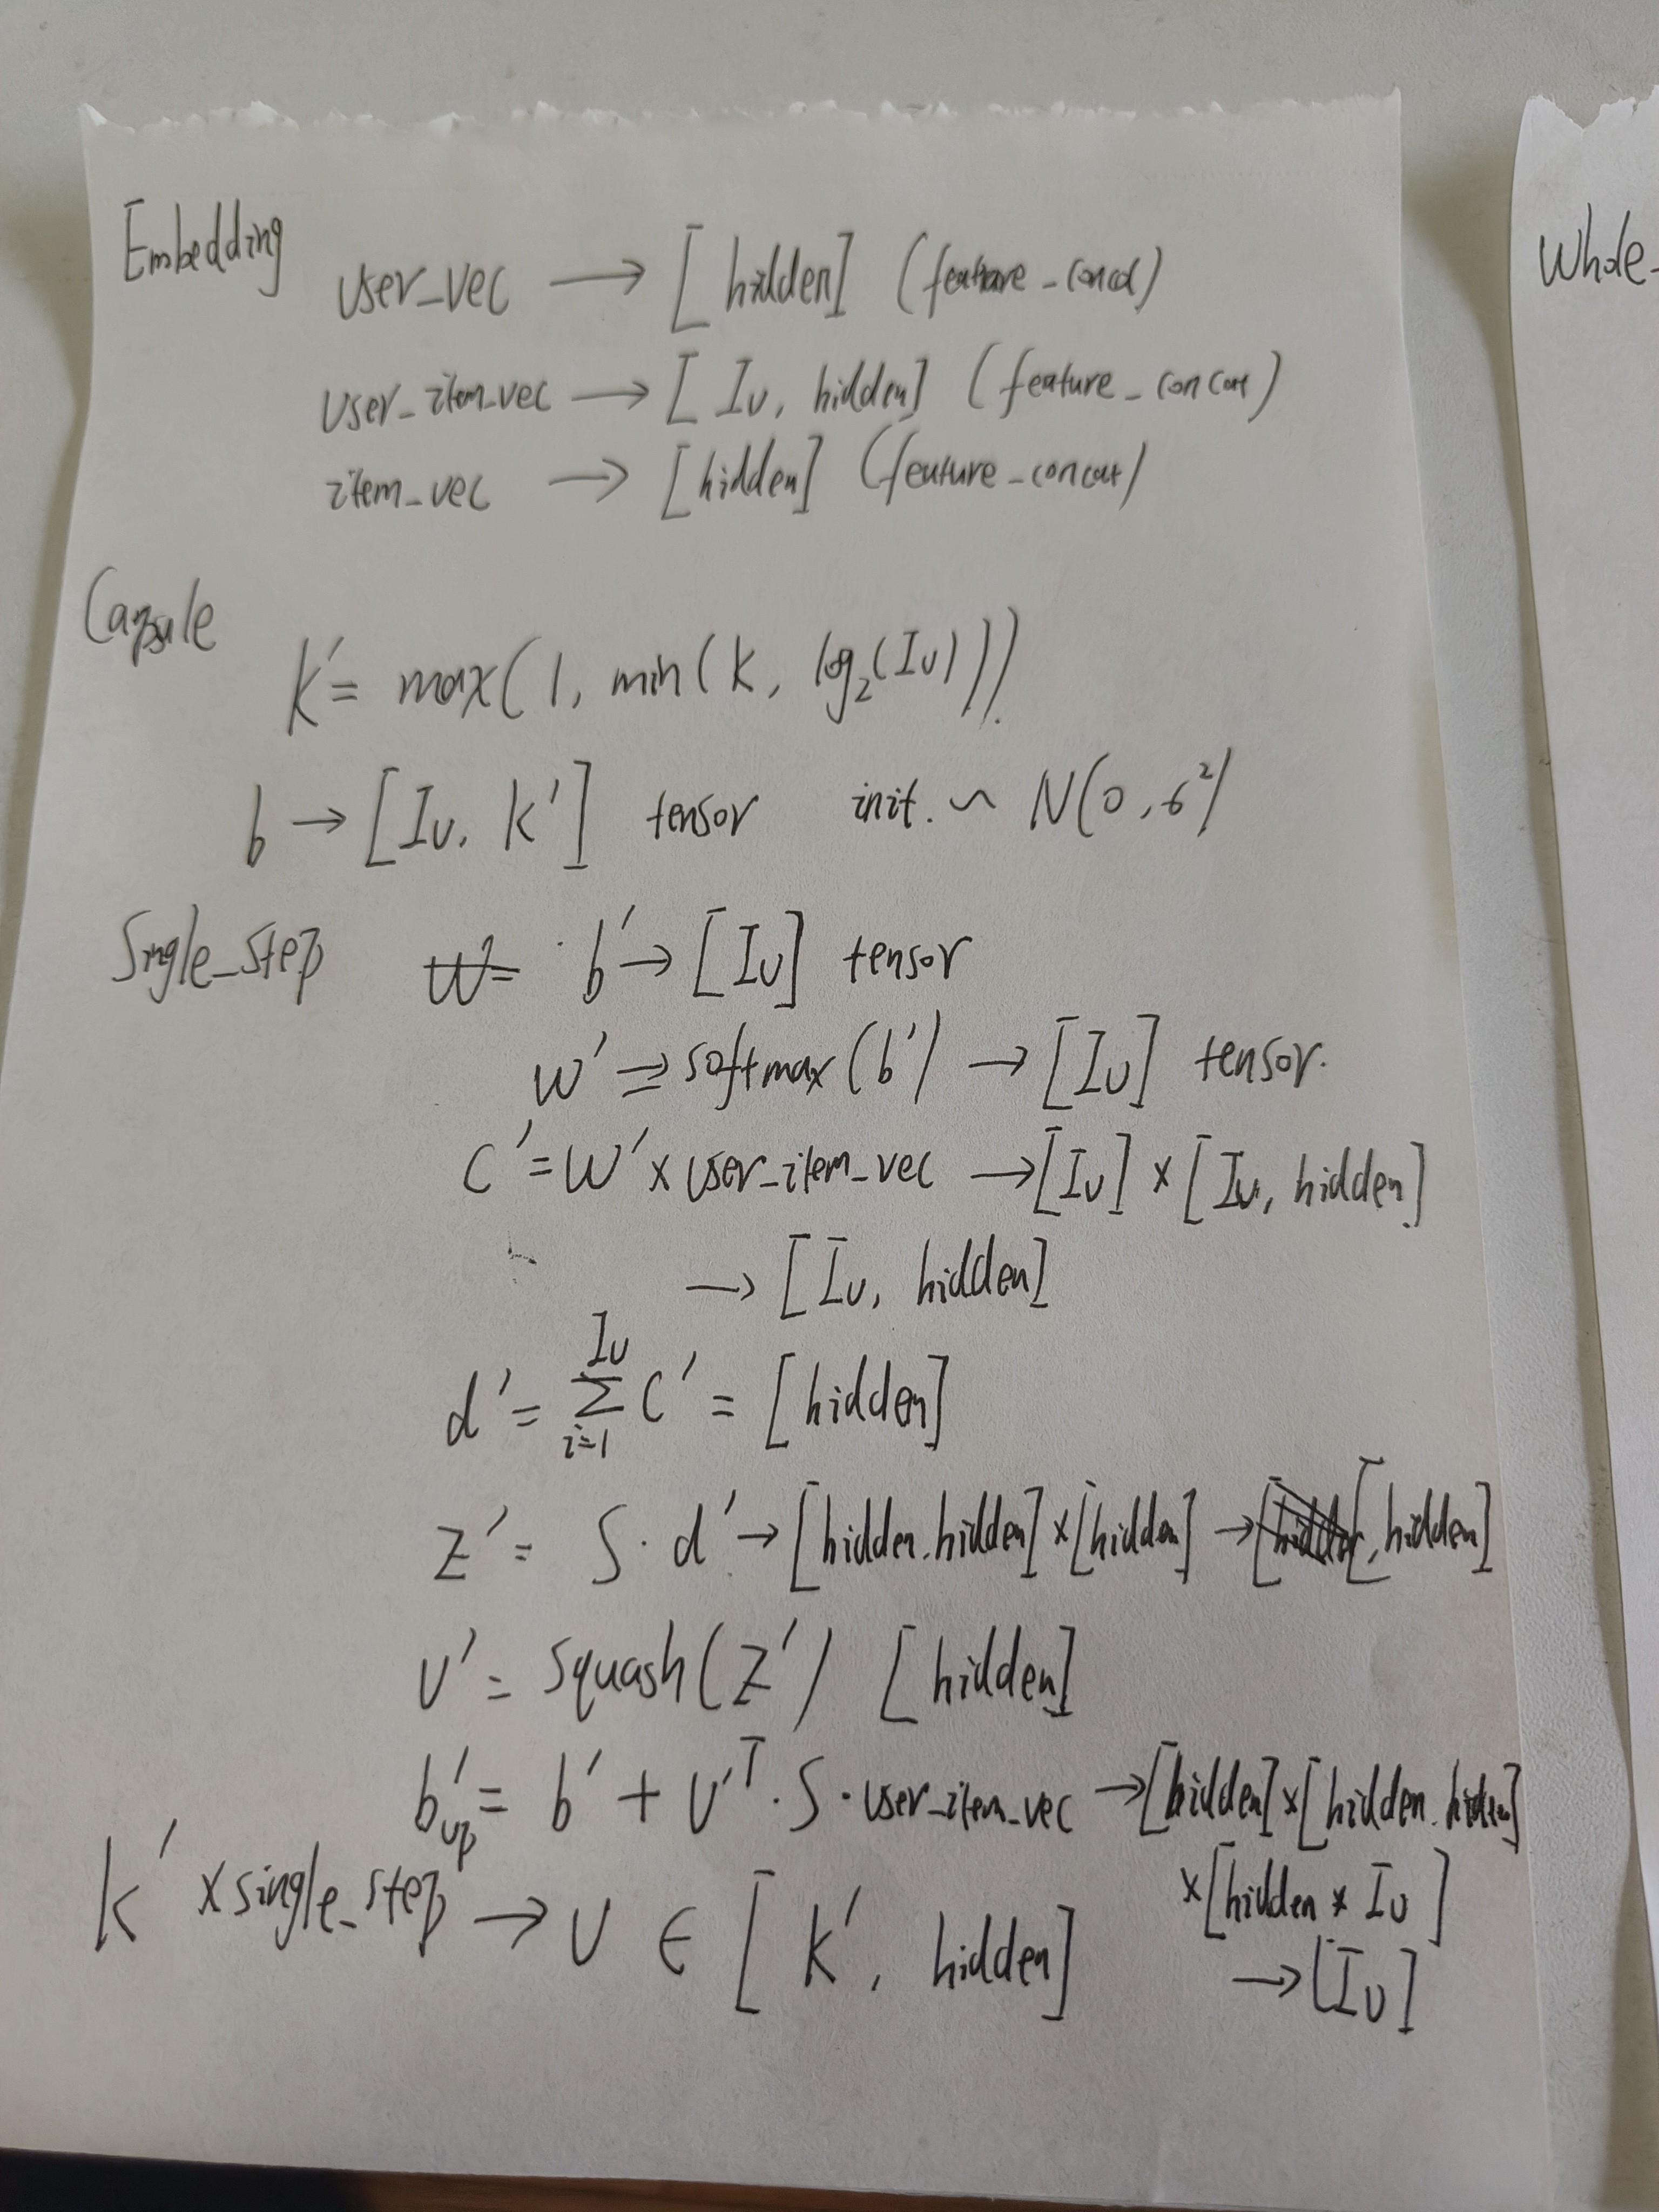 Embedding
user_vec → [ hidden] (feature_concat)
user_item_vec → [ Iu, hidden] (feature_concat)
item_vec → [hidden] (feature_concat)
Capsule
K' = max(1, min(K, log₂(Iu)))
b → [Iu, K'] tensor init. ~ N(0, σ²)
Single_step b' → [Iu] tensor
w' = softmax(b') → [Iu] tensor.
c' = w' × user_item_vec → [Iu] × [Iu, hidden]
→ [Iu, hidden]
d' = Σ_{i=1}^{Iu} c' = [hidden]
z' = S · d' → [hidden, hidden] × [hidden] → [, hidden]
u' = squash(z') [hidden]
b'up = b' + u'ᵀ · S · user_item_vec → [hidden] × [hidden, hidden]
× [hidden × Iu]
→ [Iu]
K' × single_step → U ∈ [K', hidden]
Whole_